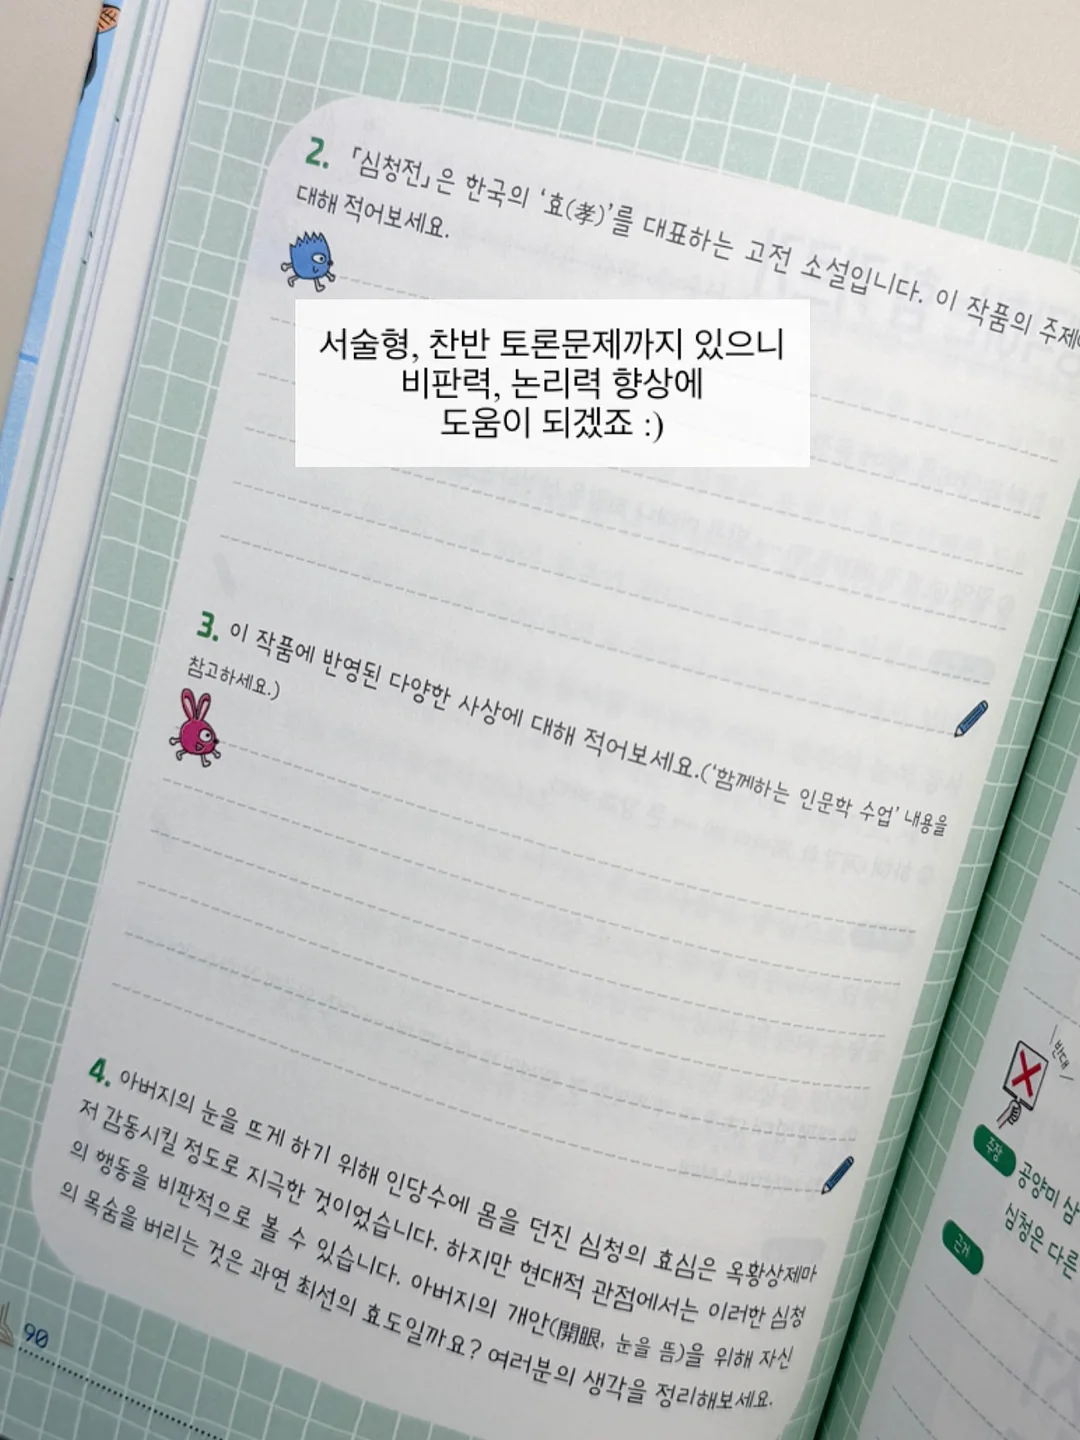 2. 「심청전」은 한국의 '효(孝)'를 대표하는 고전 소설입니다. 이 작품의 주제에
대해 적어보세요.
서술형, 찬반 토론문제까지 있으니
비판력, 논리력 향상에
도움이 되겠죠 :)
3. 이 작품에 반영된 다양한 사상에 대해 적어보세요.('함께하는 인문학 수업' 내용을
참고하세요.)
4. 아버지의 눈을 뜨게 하기 위해 인당수에 몸을 던진 심청의 효심은 옥황상제마
저 감동시킬 정도로 지극한 것이었습니다. 하지만 현대적 관점에서는 이러한 심청
의 행동을 비판적으로 볼 수 있습니다. 아버지의 개안(開眼, 눈을 뜸)을 위해 자신
의 목숨을 버리는 것은 과연 최선의 효도일까요? 여러분의 생각을 정리해보세요.
90
반대
주장
공양미 삼
심청은 다른
근거